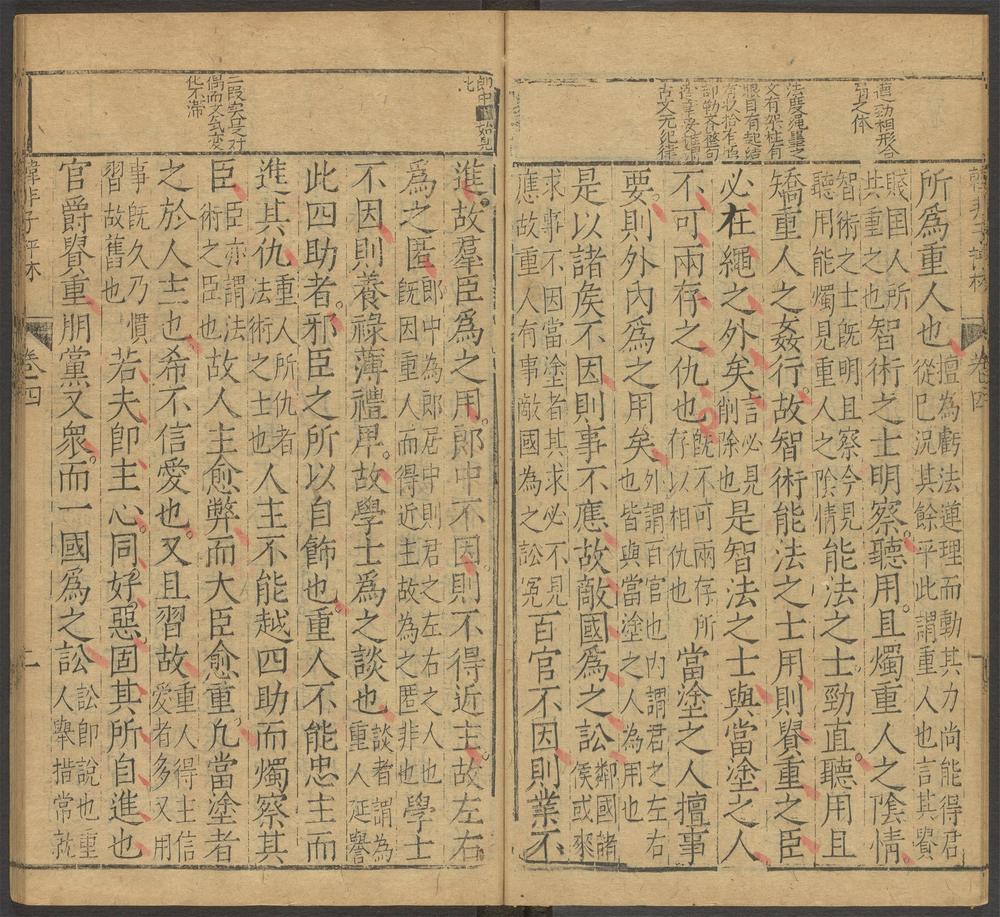 韓非子評林
卷四
法度繩墨之
文有架柱有
眼目有起結
古文元紀律
所為重人也擅為虧法遵理而動其力尚能得君從巳況其餘平此謂重人也言其貴
賤國人所共重之也智術之士明察。聽用。且燭重人之陰情
智術之士旣明且察今見聽用能燭見重人之陰情能法之士。勁直。聽用且
矯重人之姦行。故智術能法之士用則貴重之臣
必在繩之外矣言必見削除也是智法之士與當塗之人
不可兩存之仇也旣不可兩存所存以相仇也當塗之人擅事
要。則外內為之用矣外謂百官也內謂君之左右也皆與當塗之人為用也
是以諸矦不因則事不應。故敵國為之訟鄰國諸矦或來
求事不因當塗者其求必不見應故重人有事敵國為之訟冤百官不因則業不
二段突是对
偶而文气变
化不滯
進。故羣臣為之用。郎中不因。則不得近主。故左右
為之匿郎中為郎居中則君之左右之人也旣因重人而得近主故為之匿非也學士
不因則養祿薄禮卑。故學士為之談也談者謂為重人延譽
此四助者。邪臣之所以自飾也。重人不能忠主而
進其仇重人所仇者法術之士也人主不能越四助而燭察其
臣臣亦謂法術之臣也故人主愈弊而大臣愈重。凢當塗者
之於人主也希不信愛也。又且習故重人得主信愛者多又用
事旣久乃慣習故舊也若夫卽主心。同好惡。固其所自進也
官爵貴重朋黨又衆。而一國為之訟訟卽說也重人舉措常就
韓非子評林
卷四
二